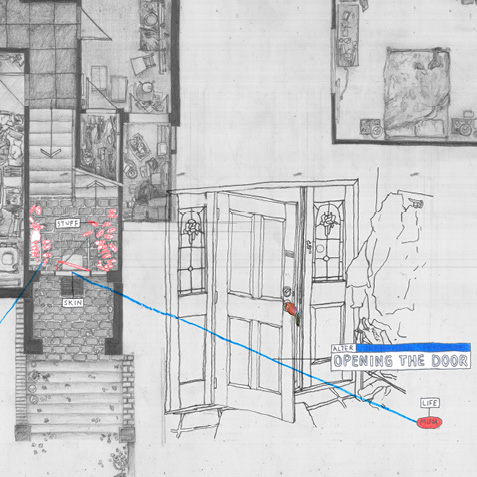 STUFF
SKIN
ALTER
OPENING THE DOOR
LIFE
MUM